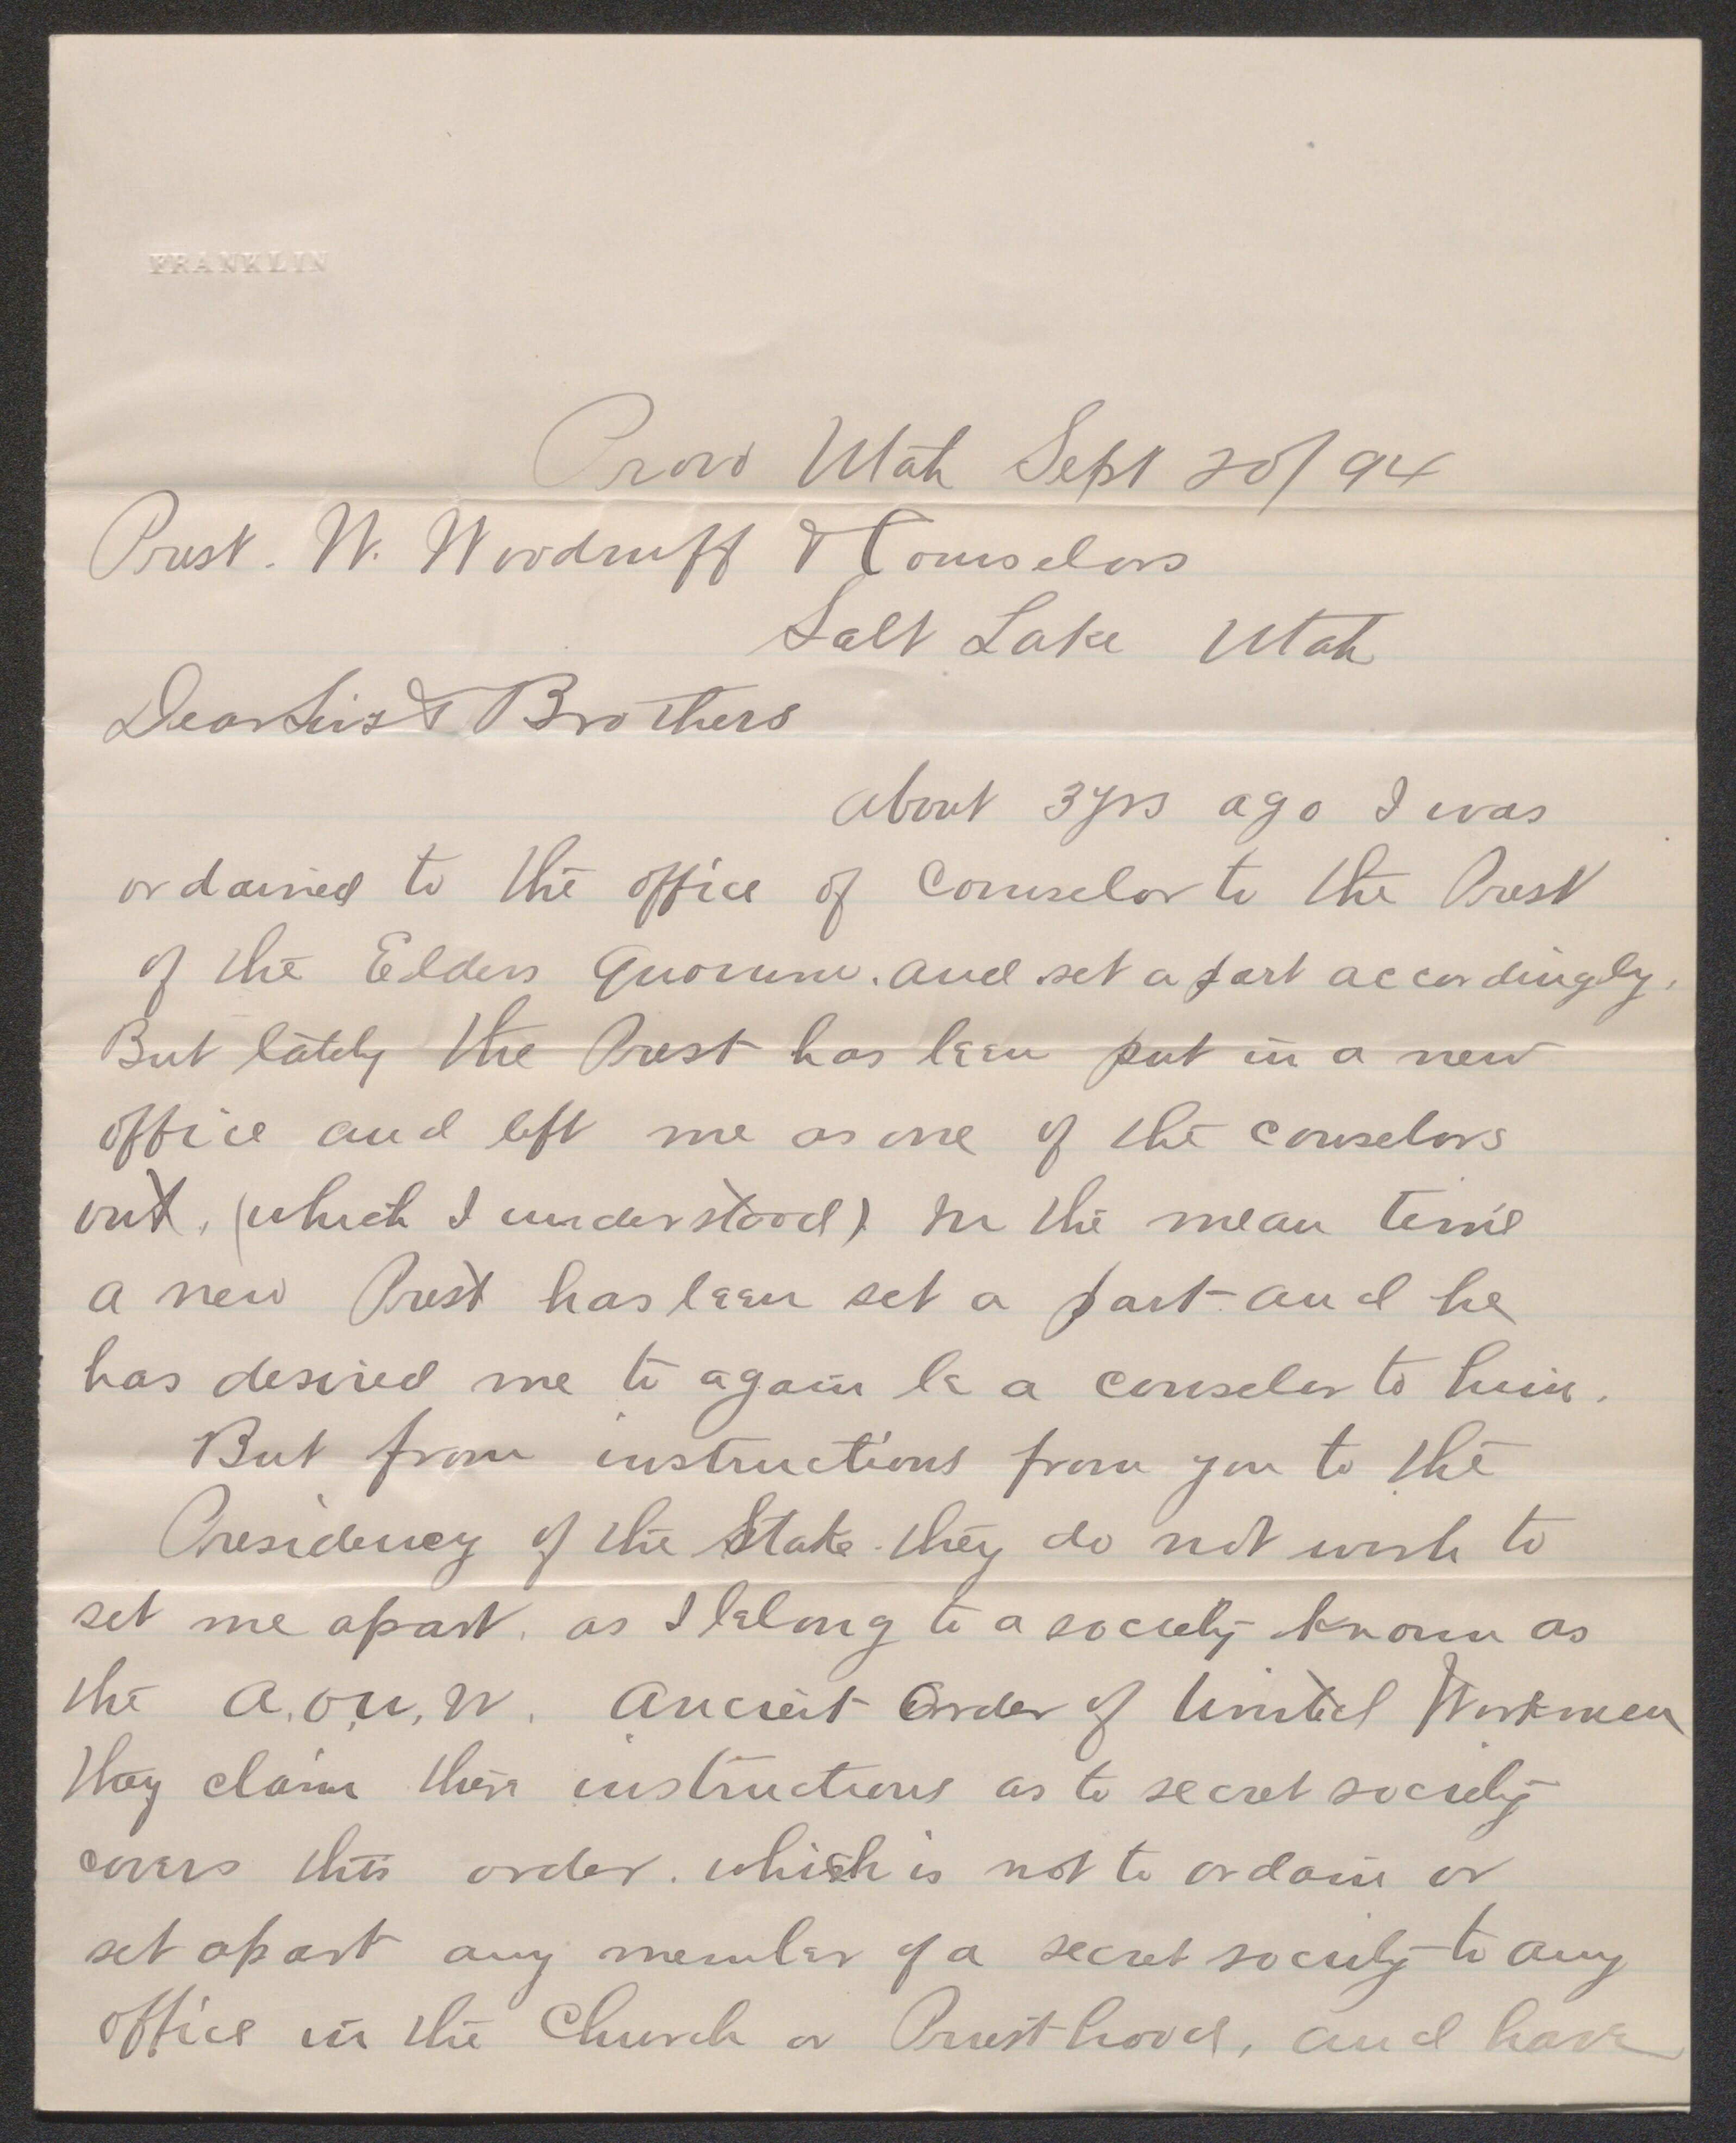 FRANKLIN
Provo Utah Sept 20/94
Prest. W. Woodruff & Counselors
Salt Lake Utah
Dear Sirs & Brothers
about 3yrs ago I was
ordained to the office of Counselor to the Prest
of the Elders Quorum. and set apart accordingly.
But lately the Prest has been put in a new
office and left me as one of the counselors
out, (which I understood). In the mean time
a new Prest has been set a part and he
has desired me to again be a counselor to him.
But from instructions from you to the
Presidency of the Stake they do not wish to
set me apart. as I belong to a society known as
the A.O.U.W. Ancient Order of United Workmen
they claim there instructions as to secret society
covers this order. which is not to ordain or
set apart any member of a secret society to any
office in the Church or Priesthood, and have